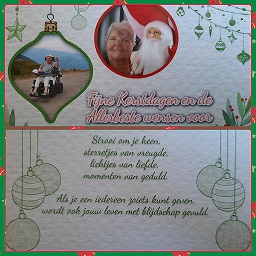 Fijne Kerstdagen en de
Allerbeste wensen voor
Strooi om je heen,
sterretjes van vreugde,
lichtjes van liefde,
momenten van geduld.
Als je een iedereen zoiets kunt geven,
wordt ook jouw leven met blijdschap gevuld.